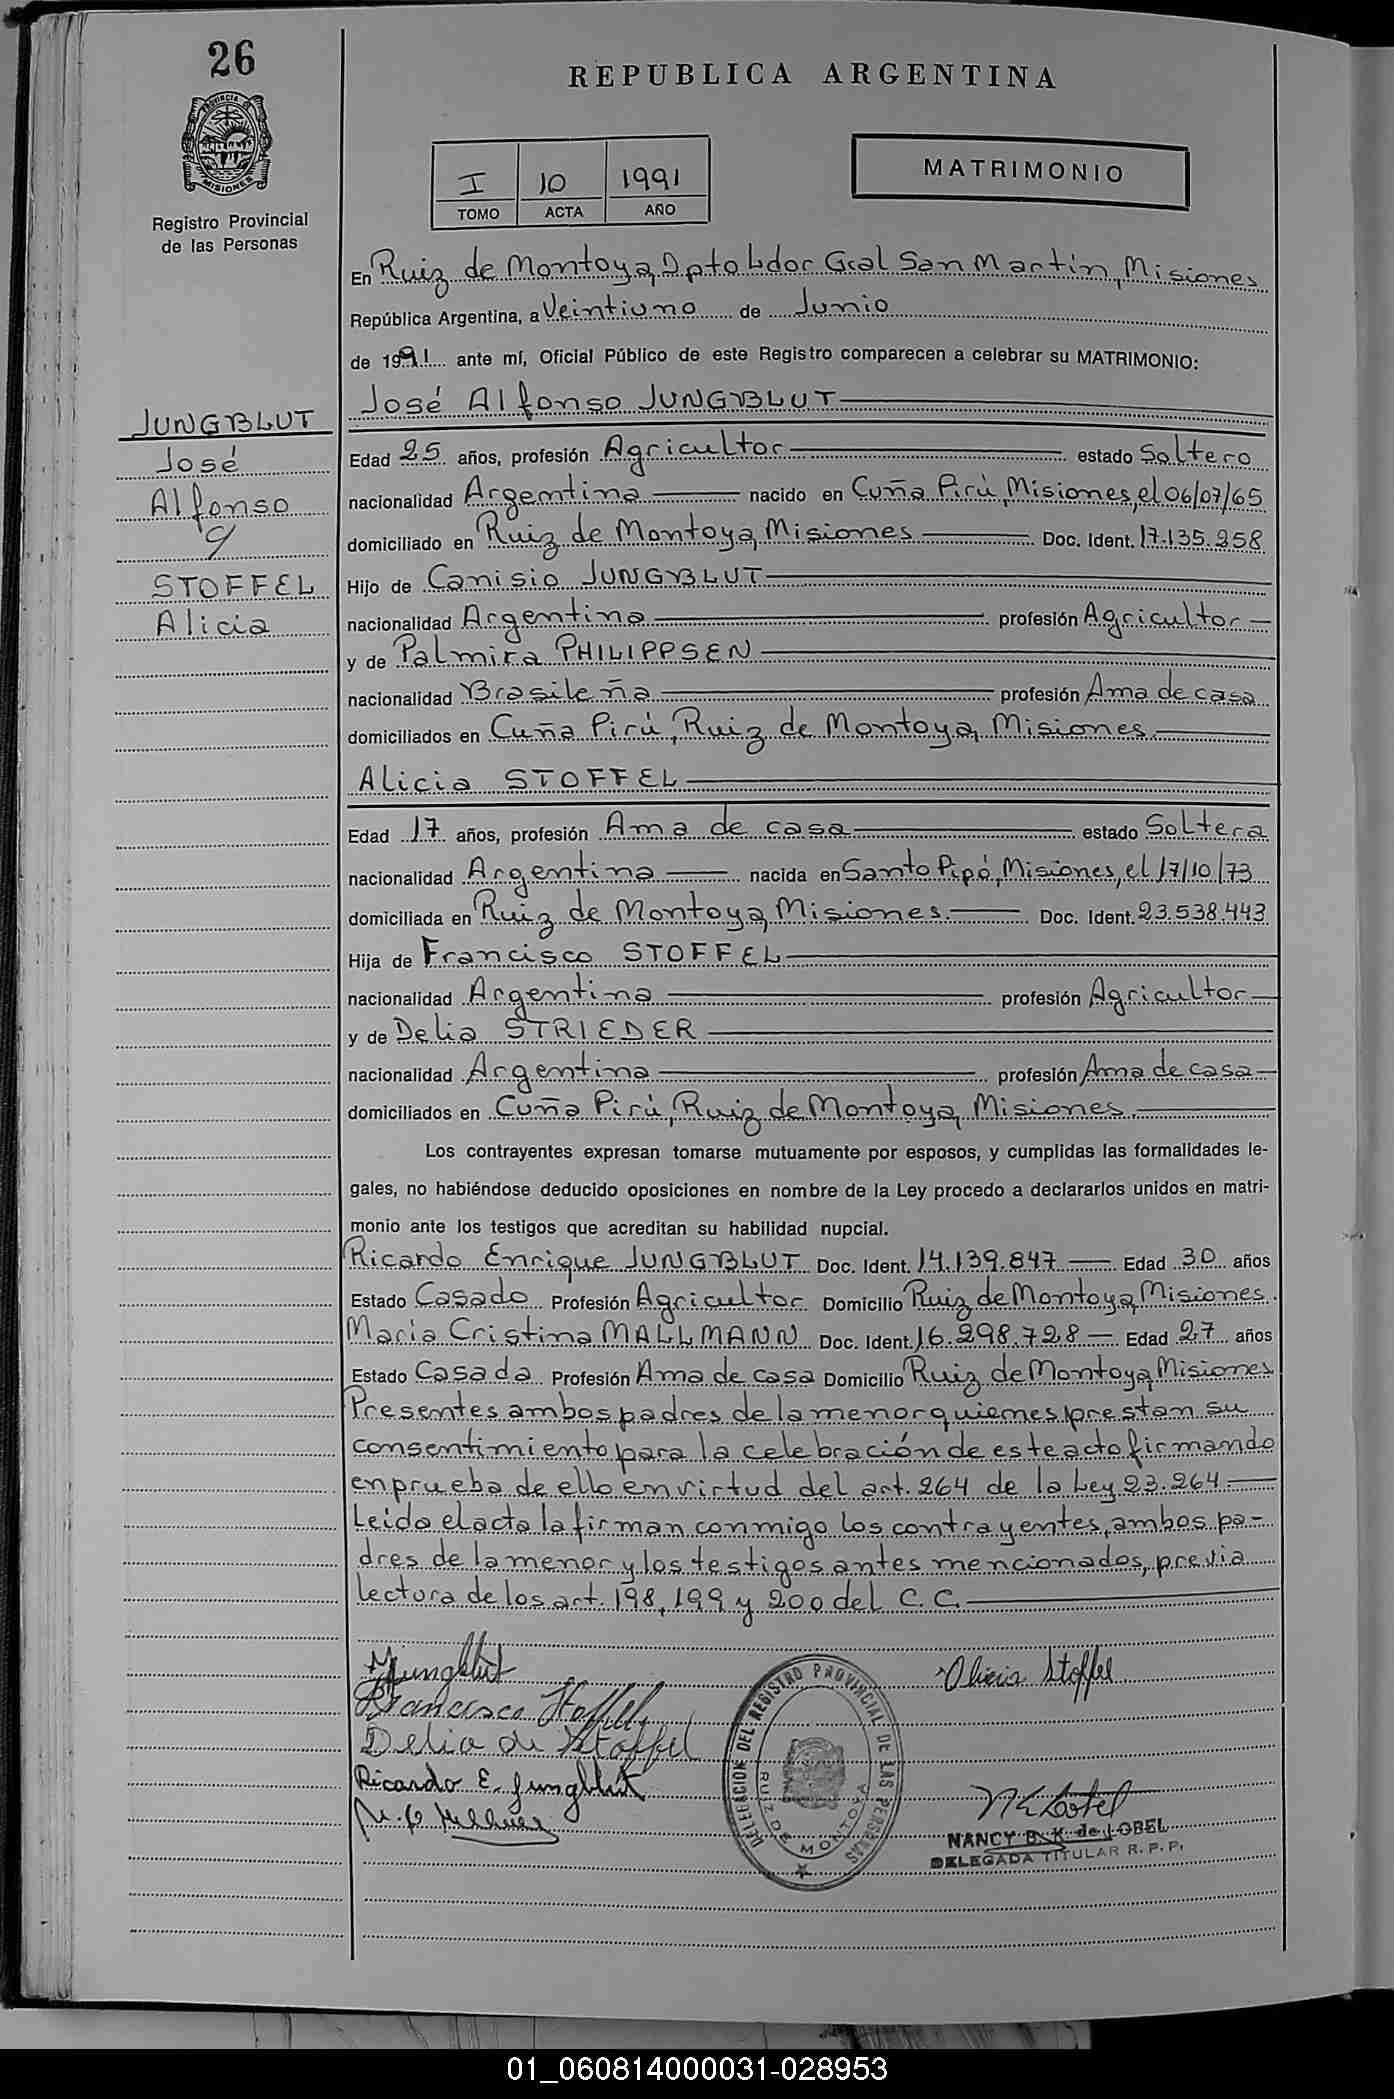 26
REPUBLICA ARGENTINA
PROVINCIA DE MISIONES
Registro Provincial
de las Personas
I 10 1991
TOMO ACTA AÑO
MATRIMONIO
En Ruiz de Montoya, Dpto Ldor Gral San Martín, Misiones
República Argentina, a Veintiuno de Junio
de 1991 ante mí, Oficial Público de este Registro comparecen a celebrar su MATRIMONIO:
JUNGBLUT
José
Alfonso
y
STOFFEL
Alicia
José Alfonso JUNGBLUT
Edad 25 años, profesión Agricultor estado Soltero
nacionalidad Argentina nacido en Cuña Pirú, Misiones, el 06/07/65
domiciliado en Ruiz de Montoya, Misiones Doc. Ident. 17.135.258
Hijo de Canisio JUNGBLUT
nacionalidad Argentina profesión Agricultor
y de Palmira PHILIPPSEN
nacionalidad Brasileña profesión Ama de casa
domiciliados en Cuña Pirú, Ruiz de Montoya, Misiones
Alicia STOFFEL
Edad 17 años, profesión Ama de casa estado Soltera
nacionalidad Argentina nacida en Santo Pipó, Misiones, el 17/10/73
domiciliada en Ruiz de Montoya, Misiones Doc. Ident. 23.538.443
Hija de Francisco STOFFEL
nacionalidad Argentina profesión Agricultor
y de Delia STRIEDER
nacionalidad Argentina profesión Ama de casa
domiciliados en Cuña Pirú, Ruiz de Montoya, Misiones
Los contrayentes expresan tomarse mutuamente por esposos, y cumplidas las formalidades le-
gales, no habiéndose deducido oposiciones en nombre de la Ley procedo a declararlos unidos en matri-
monio ante los testigos que acreditan su habilidad nupcial.
Ricardo Enrique JUNGBLUT Doc. Ident. 14.139.847 Edad 30 años
Estado Casado Profesión Agricultor Domicilio Ruiz de Montoya, Misiones
María Cristina MALLMANN Doc. Ident. 16.298.728 Edad 27 años
Estado Casada Profesión Ama de casa Domicilio Ruiz de Montoya, Misiones
Presentes ambos padres de la menor quienes prestan su
consentimiento para la celebración de este acto firmando
en prueba de ello en virtud del art. 264 de la Ley 23.264
Leida el acta la firman conmigo los contrayentes, ambos pa-
dres de la menor y los testigos antes mencionados, previa
lectura de los art. 198, 199 y 200 del C.C.
Jungblut
Alicia Stoffel
Francisco Stoffel
Delia de Stoffel
Ricardo E. Jungblut
DELEGACION DEL REGISTRO PROVINCIAL DE LAS PERSONAS
RUIZ DE MONTOYA
NANCY B. K. de LOBEL
DELEGADA TITULAR R. P. P.
01_060814000031-028953